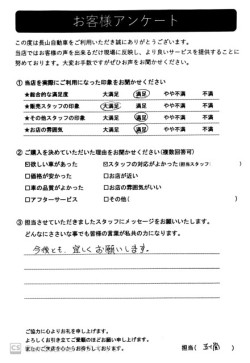 お客様アンケート
この度は長山自動車をご利用いただき誠にありがとうございます。
当店ではお客様の声を出来るだけ現場に反映し、より良いサービスを提供することに
努めております。大変お手数ですがぜひお声をお聞かせください。
① 当店を実際にご利用になった印象をお聞かせください
★総合的な満足度 大満足 満足 やや不満 不満
★販売スタッフの印象 大満足 満足 やや不満 不満
★その他スタッフの印象 大満足 満足 やや不満 不満
★お店の雰囲気 大満足 満足 やや不満 不満
② ご購入を決めていただいた理由をお聞かせください(複数回答可)
☑欲しい車があった ☑スタッフの対応がよかった(担当スタッフ: )
□価格が安かった □お店が近い
□車の品質がよかった □お店の雰囲気がいい
□アフターサービス □その他( )
③ 担当させていただきましたスタッフにメッセージをお願いいたします。
どんなにささいな事でも皆様の言葉が私共の力になります。
今後とも、宜しくお願いします。
ご協力に心よりお礼を申し上げます。
よろしくお引き立てご愛顧のほどお願い申し上げます。
またのご来店を心からお待ちしております。 担当( )